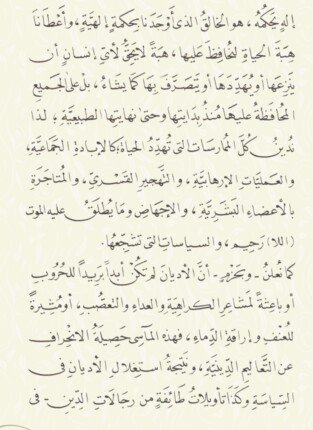 إلهٍ يَحْكُمُهُ، هو الخالقُ الذي أَوْجَدَنا بحكمةٍ إلهيَّةٍ، وأَعْطَانَا
هِبَةَ الحياةِ لنُحَافِظَ عليها، هبةً لا يَحِقُّ لأيِّ إنسانٍ أن
يَنزِعَها أو يُهَدِّدَها أو يَتَصرَّفَ بها كما يَشاءُ، بل على الجميعِ
المُحافَظةُ عليها مُنذُ بِدَايتِها وحتى نهايتِها الطبيعيَّةِ؛ لذا
نُدِينُ كُلَّ المُمَارَسات التي تُهدِّدُ الحياةَ؛ كالإبادةِ الجماعيَّةِ،
والعَمَليَّاتِ الإرهابيَّةِ، والتَّهجِيرِ القَسْرِيِّ، والمُتَاجَرَةِ
بالأعضاءِ البَشَرِيَّةِ، والإجْهَاضِ، وما يُطلَقُ عليه الموت
(اللا) رَحِيم، والسياساتِ التي تُشجِّعُها.
كما نُعلِنُ - وبحَزمٍ - أنَّ الأديانَ لم تَكُنْ أبدًا بَرِيدًا للحُرُوبِ
أو باعِثةً لمَشَاعِرِ الكَراهِيَةِ والعداءِ والتعصُّبِ، أو مُثِيرةً
للعُنْفِ وإراقةِ الدِّماءِ، فهذه المآسِي حَصِيلَةُ الانْحِرافِ
عن التعاليمِ الدِّينِيَّةِ، ونتيجةُ استِغلالِ الأديانِ في
السِّياسَةِ، وكذا تأويلاتُ طائفةٍ من رِجالاتِ الدِّينِ - في